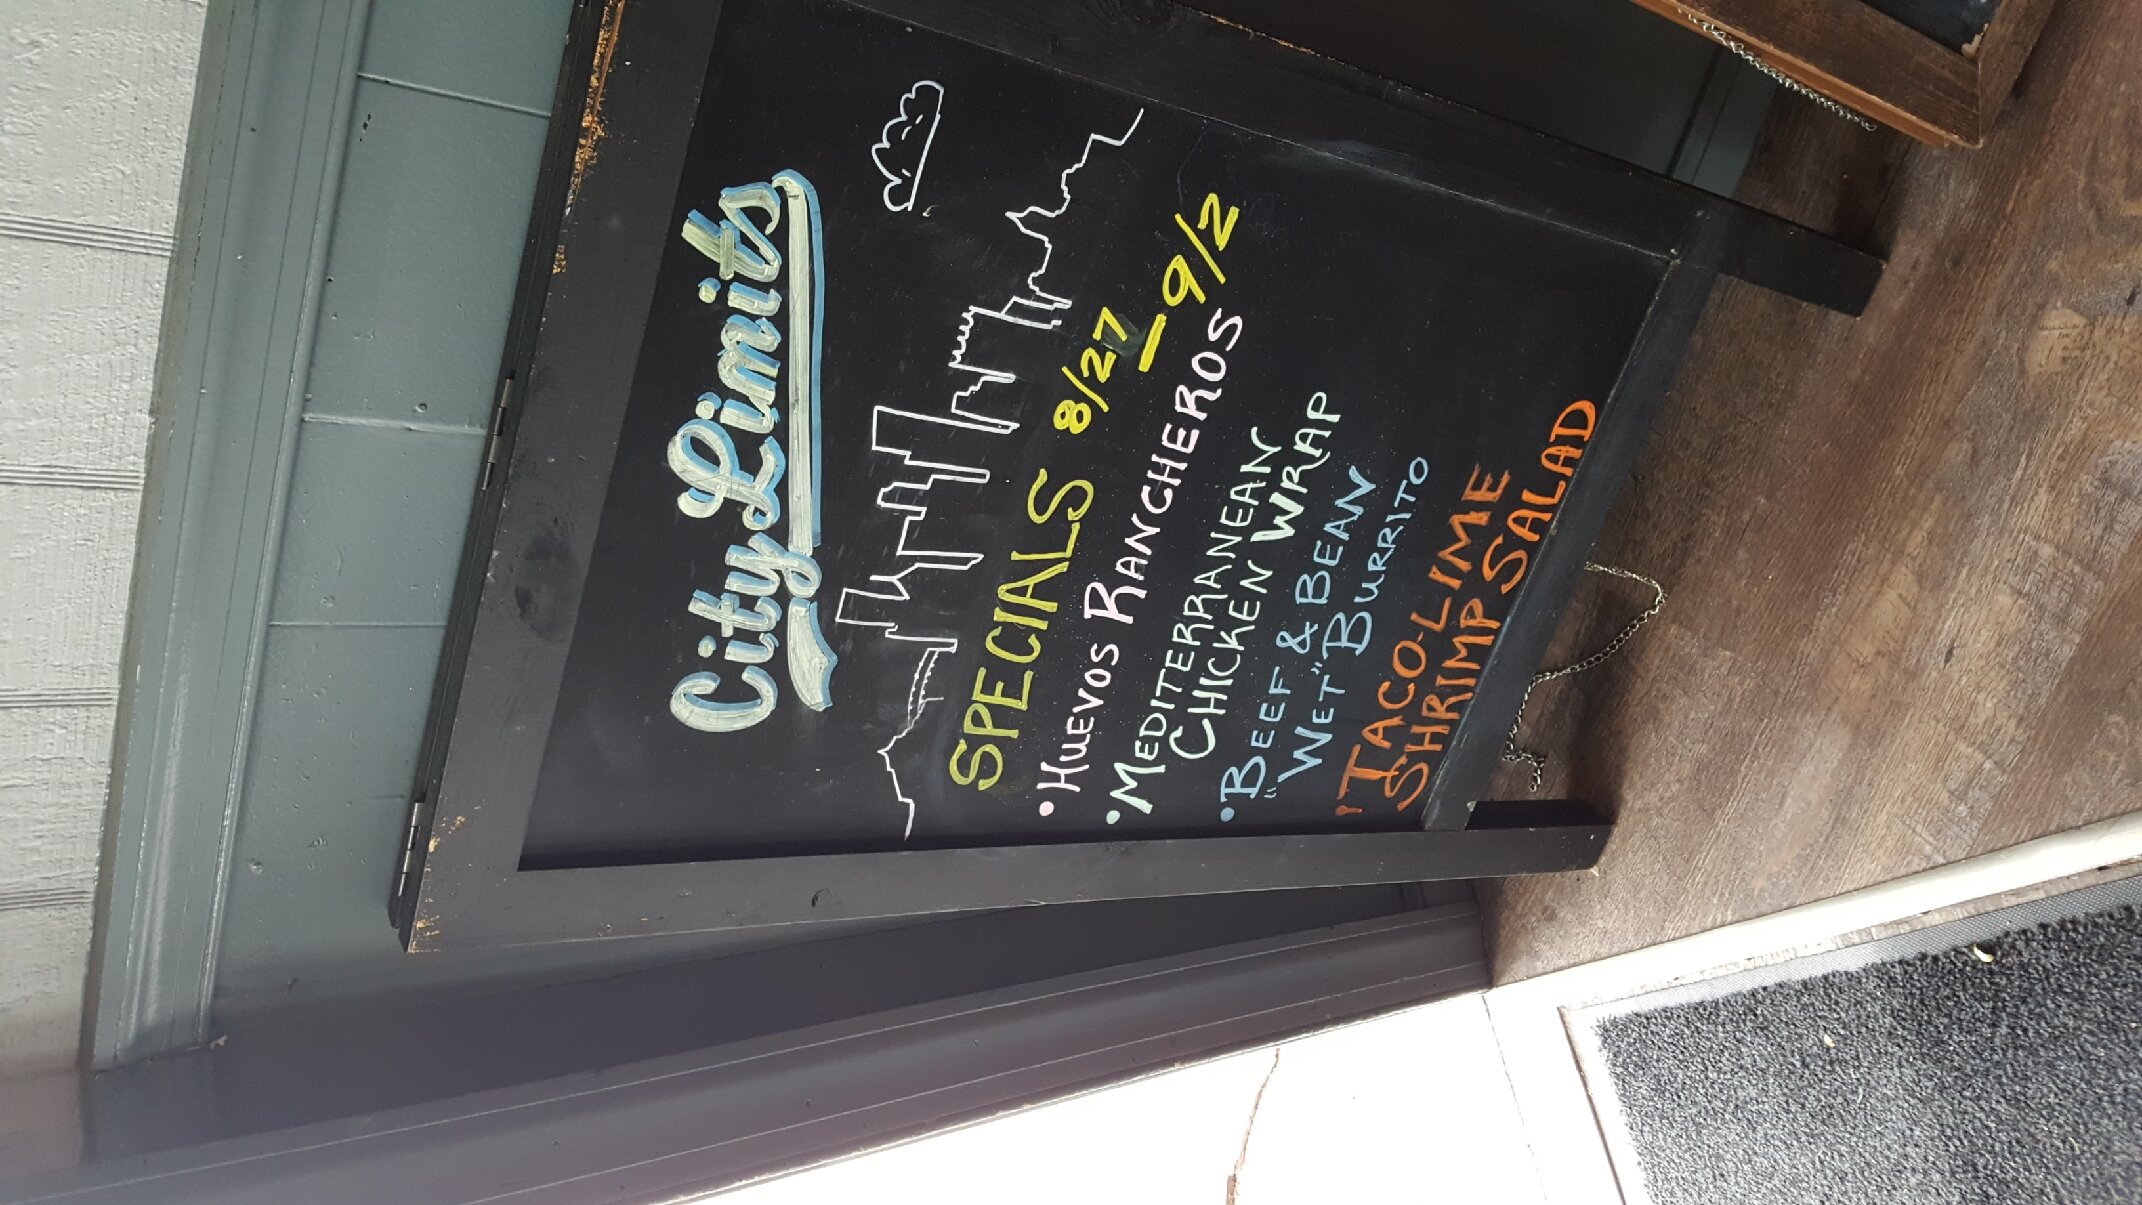 City Limits
SPECIALS 8/27 - 9/2
• HUEVOS RANCHEROS
• MEDITERRANEAN
CHICKEN WRAP
• BEEF & BEAN
"WET" BURRITO
• TACO-LIME
SHRIMP SALAD